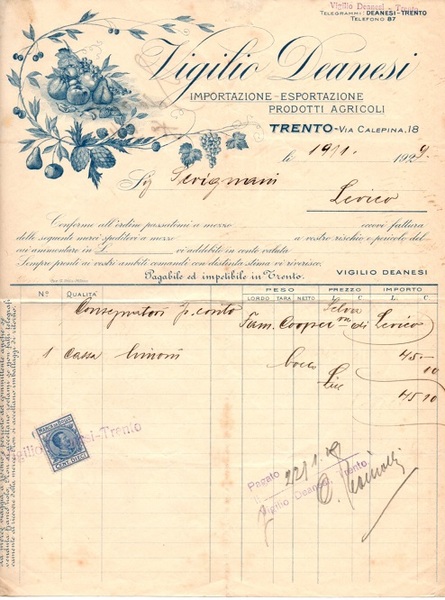 Vigilio Deanesi - Trento
TELEGRAMMI: DEANESI-TRENTO
TELEFONO 87
Vigilio Deanesi
IMPORTAZIONE - ESPORTAZIONE
PRODOTTI AGRICOLI
TRENTO - VIA CALEPINA, 18
li 19/1. 1929.
Sig
Levico
Conforme all'ordine passatomi a mezzo eccovi fattura
delle seguenti merci speditevi a mezzo a vostro rischio e pericolo del
cui ammontare in L. vi addebito in conto valuta
Sempre pronti ai vostri ambiti comandi con distinta stima vi riverisco.
Pagabile ed impetibile in Trento.
VIGILIO DEANESI
PESO PREZZO IMPORTO
No. QUALITÀ LORDO TARA NETTO L. C. L. C.
p. conto
Fam. Cooper di Levico
1 Cassa limoni 45 -
10
Lire 45 10
MARCA DA BOLLO
CENT. DIECI
Vigilio Deanesi-Trento
Pagato 22/1
Vigilio Deanesi, Trento